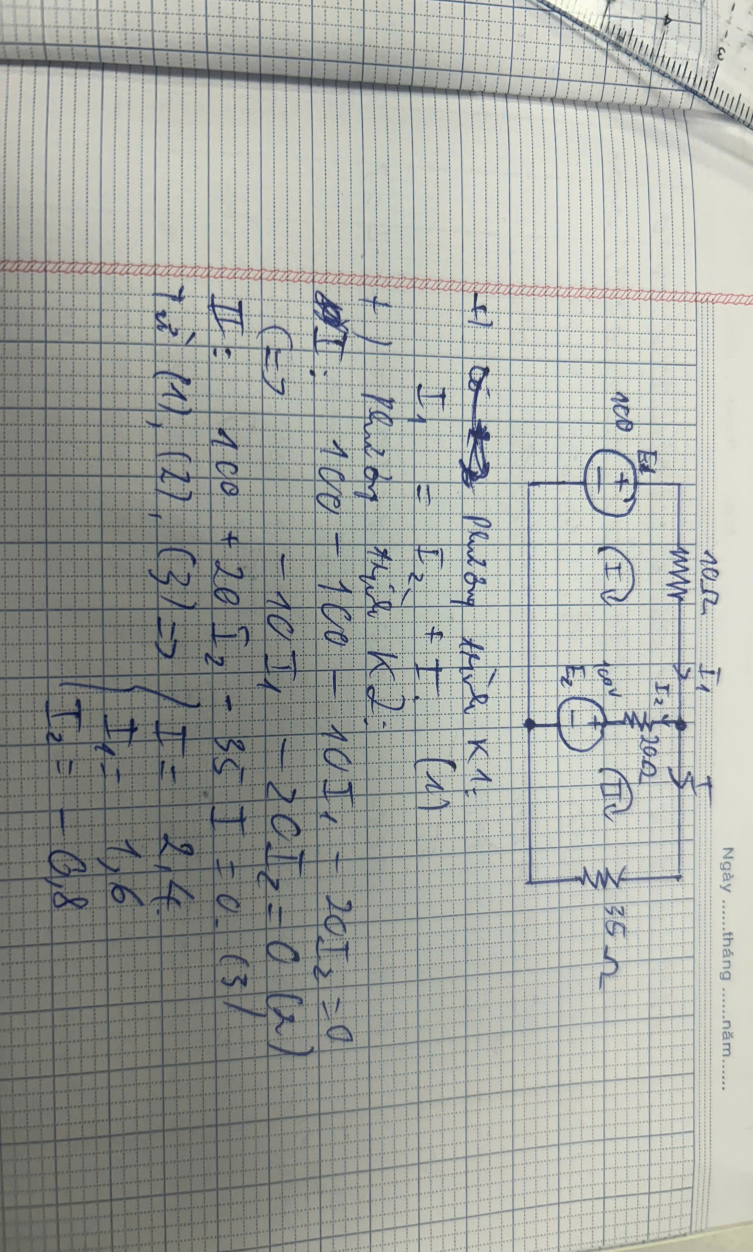 Ngày ......tháng ......năm......
10Ω I₁ I
E₁ I₂ 20Ω
100 I 100V II 35Ω
E₂
+) Phương trình K1:
I₁ = I₂ + I. (1)
+) Phương trình K2:
I: 100 - 100 - 10I₁ - 20I₂ = 0
(=> - 10I₁ - 20I₂ = 0 (2)
II: 100 + 20I₂ - 35I = 0. (3)
Từ (1), (2), (3) => { I = 2,4
I₁ = 1,6
I₂ = - 0,8
3
4